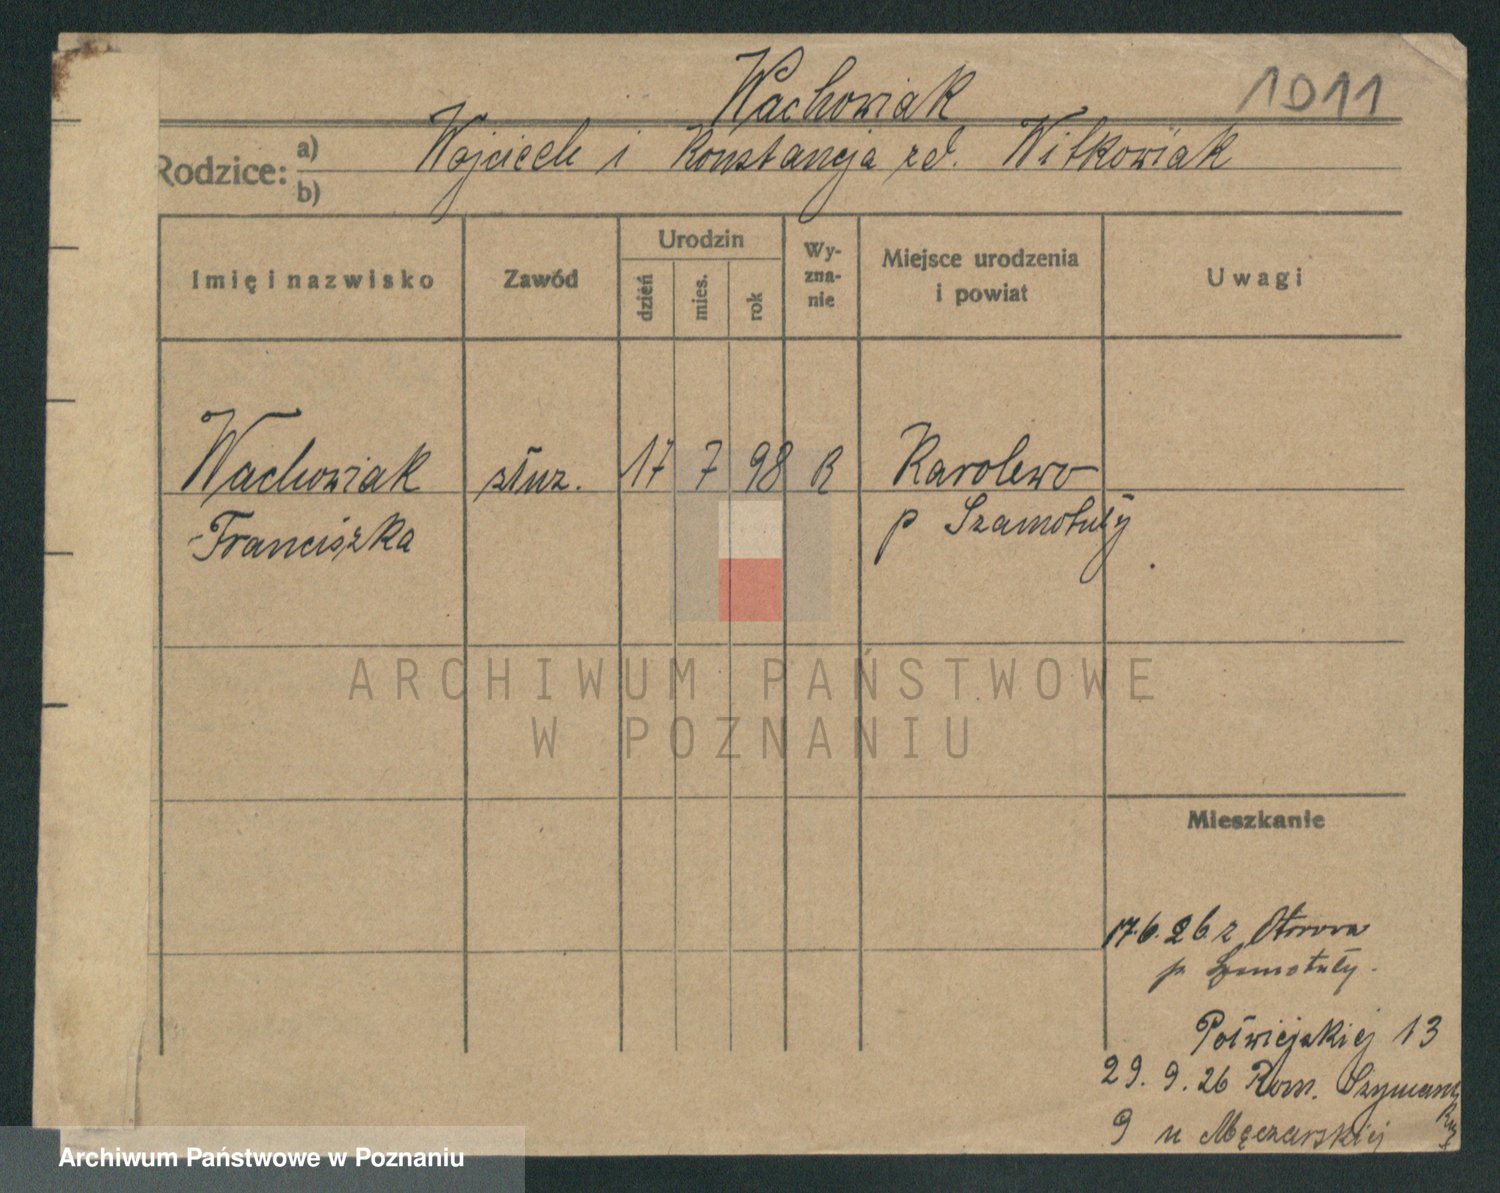 Wachowiak
1011
Rodzice: a) Wojciech i Konstancja zd. Witkowiak
b)
Imię i nazwisko
Zawód
Urodzin
dzień
mies.
rok
Wy-
zna-
nie
Miejsce urodzenia
i powiat
Uwagi
Wachowiak służ. 17 7 98 R Karolewo
Franciszka p Szamotuły
ARCHIWUM PAŃSTWOWE
W POZNANIU
Mieszkanie
17.6.26. z Otorowa
p. Szamotuły.
Półwiejskiej 13
29. 9. 26 Rom. Szymańs
9 u Męczarskiej
Archiwum Państwowe w Poznaniu